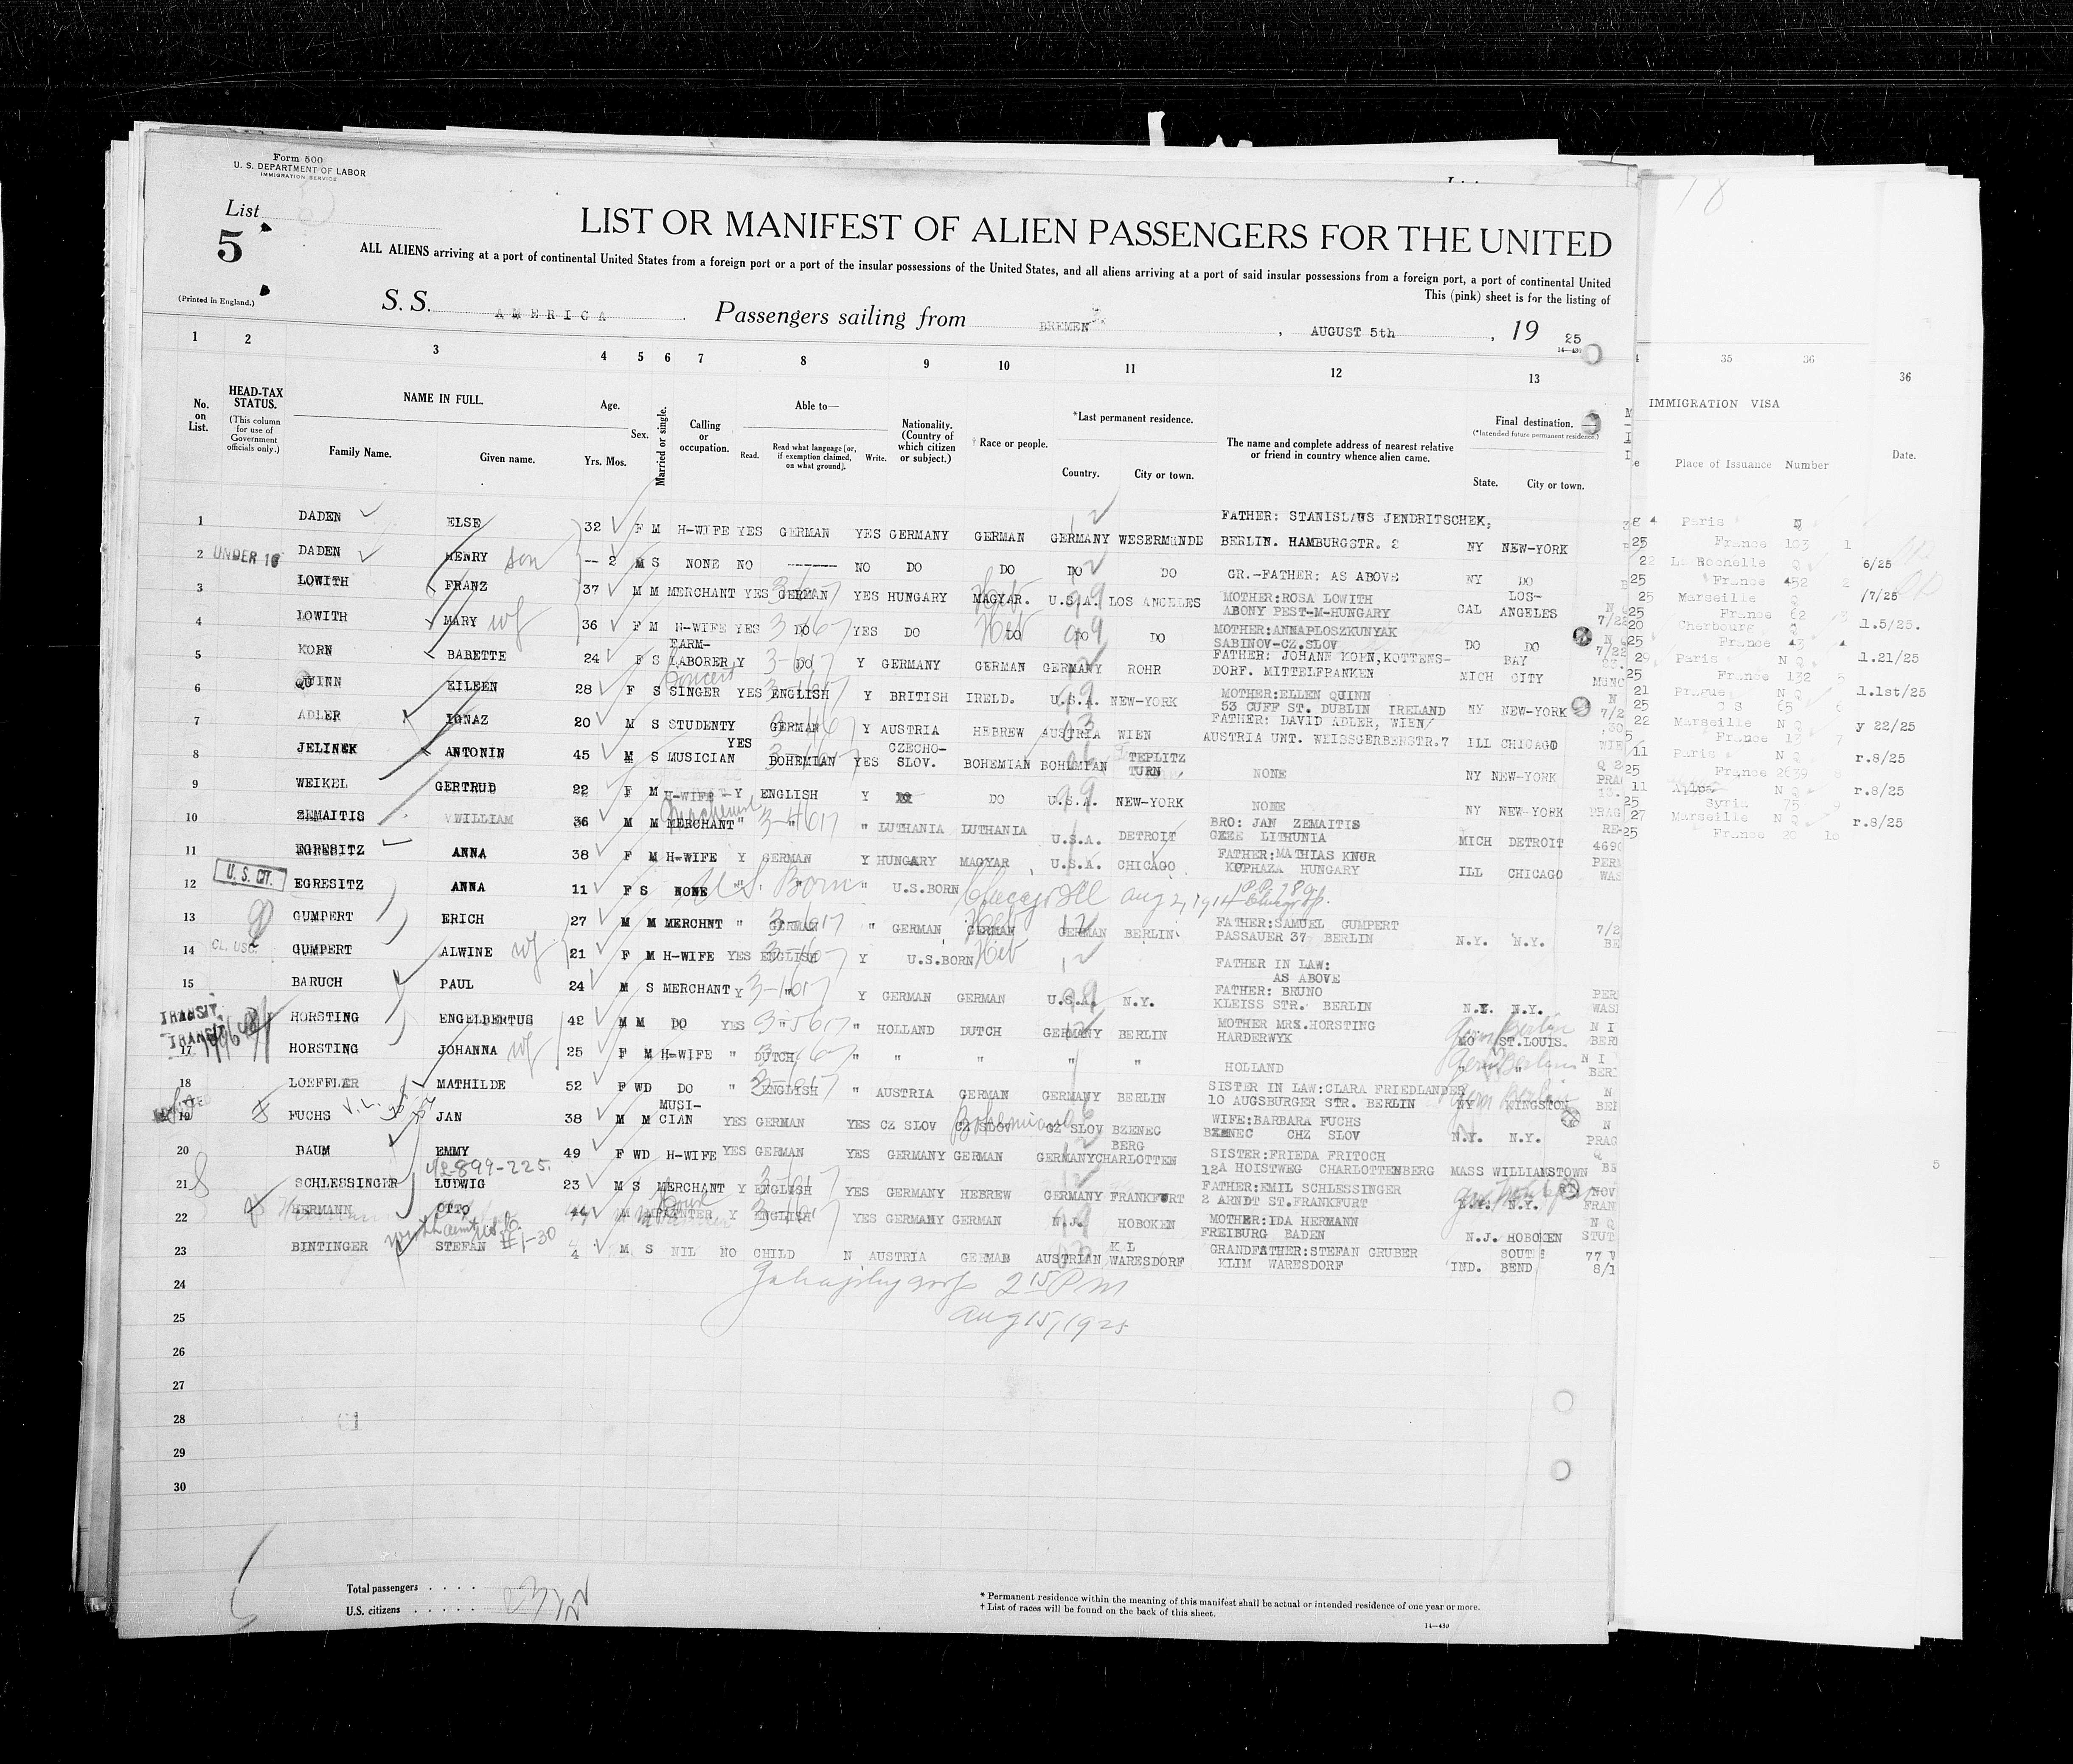 Form 500
U. S. DEPARTMENT OF LABOR
IMMIGRATION SERVICE
List
5
(Printed in England.)
LIST OR MANIFEST OF ALIEN PASSENGERS FOR THE UNITED
ALL ALIENS arriving at a port of continental United States from a foreign port or a port of the insular possessions of the United States, and all aliens arriving at a port of said insular possessions from a foreign port, a port of continental United
This (pink) sheet is for the listing of
S. S. AMERICA Passengers sailing from BREMEN , AUGUST 5th , 19 25
14—430
1 2 3 4 5 6 7 8 9 10 11 12 13
No. on List.
HEAD-TAX STATUS.
(This column for use of Government officials only.)
NAME IN FULL.
Family Name. Given name.
Age.
Yrs. Mos.
Sex.
Married or single.
Calling or occupation.
Able to—
Read. Read what language [or, if exemption claimed, on what ground]. Write.
Nationality. (Country of which citizen or subject.)
† Race or people.
*Last permanent residence.
Country. City or town.
The name and complete address of nearest relative or friend in country whence alien came.
Final destination.
(*Intended future permanent residence.)
State. City or town.
1 DADEN ELSE 32 F M H-WIFE YES GERMAN YES GERMANY GERMAN GERMANY WESERMUNDE FATHER: STANISLAUS JENDRITSCHEK, BERLIN. HAMBURGSTR. 2 NY NEW-YORK
2 UNDER 16 DADEN HENRY son -- 2 M S NONE NO ------ NO DO DO DO DO GR.-FATHER: AS ABOVE NY DO
3 LOWITH FRANZ 37 M M MERCHANT YES GERMAN YES HUNGARY MAGYAR. Heb U.S.A. LOS ANGELES MOTHER:ROSA LOWITH ABONY PEST-M-HUNGARY CAL LOS-ANGELES
4 LOWITH MARY wf 36 F M H-WIFE YES DO YES DO DO Heb DO DO MOTHER:ANNAPLOSZKUNYAK SABINOV-CZ.SLOV DO DO
5 KORN BABETTE 24 F S FARM-LABORER Y DO Y GERMANY GERMAN GERMANY ROHR FATHER: JOHANN KORN,KOTTENS-DORF. MITTELFRANKEN MICH BAY CITY
6 QUINN EILEEN 28 F S Concert SINGER YES ENGLISH Y BRITISH IRELD. U.S.A. NEW-YORK MOTHER:ELLEN QUINN 53 CUFF ST. DUBLIN IRELAND NY NEW-YORK
7 ADLER IGNAZ 20 M S STUDENTY GERMAN Y AUSTRIA HEBREW AUSTRIA WIEN FATHER: DAVID ADLER, WIEN/ AUSTRIA UNT. WEISSGERBERSTR.7 ILL CHICAGO
8 JELINEK ANTONIN 45 M S MUSICIAN YES BOHEMIAN YES CZECHO-SLOV. BOHEMIAN BOHEMIAN TEPLITZ TURN NONE NY NEW-YORK
9 WEIKEL GERTRUD 22 F M H-WIFE -Y ENGLISH Y DO DO U.S.A. NEW-YORK NONE NY NEW-YORK
10 ZEMAITIS WILLIAM 36 M M MERCHANT " " " LUTHANIA LUTHANIA U.S.A. DETROIT BRO: JAN ZEMAITIS LITHUNIA MICH DETROIT
11 EGRESITZ ANNA 38 F M H-WIFE Y GERMAN Y HUNGARY MAGYAR U.S.A. CHICAGO FATHER:MATHIAS KNUR KOPHAZA HUNGARY ILL CHICAGO
12 U. S. CIT. EGRESITZ ANNA 11 F S NONE " " " U.S.BORN U S Born Chicago Ill Aug 2, 1914
13 GUMPERT ERICH 27 M M MERCHNT " GERMAN " GERMAN GERMAN Heb GERMAN BERLIN FATHER:SAMUEL GUMPERT PASSAUER 37 BERLIN N.Y. N.Y.
14 CL. USC. GUMPERT ALWINE wf 21 F M H-WIFE YES ENGLISH Y U.S.BORN Heb FATHER IN LAW: AS ABOVE
15 BARUCH PAUL 24 M S MERCHANT Y " Y GERMAN GERMAN U.S.A. N.Y. FATHER: BRUNO KLEISS STR. BERLIN N.Y. N.Y.
TRANSIT HORSTING ENGELBERTUS 42 M M DO YES " " HOLLAND DUTCH GERMANY BERLIN MOTHER MRS.HORSTING HARDERWYK MO ST.LOUIS. Germ Berlin
TRANSIT 17 HORSTING JOHANNA wf 25 F M H-WIFE " DUTCH " " " " " HOLLAND " " Germ Berlin
18 LOEFFLER MATHILDE 52 F WD DO " ENGLISH " AUSTRIA GERMAN GERMANY BERLIN SISTER IN LAW:CLARA FRIEDLANDER 10 AUGSBURGER STR. BERLIN NY KINGSTON
19 FUCHS JAN 38 M M MUSI-CIAN YES GERMAN YES CZ SLOV CZ SLOV Bohemian CZ SLOV BZENEG WIFE:BARBARA FUCHS CHZ SLOV N.Y. N.Y.
20 BAUM EMMY 49 F WD H-WIFE YES GERMAN YES GERMANY GERMAN GERMANY BERG CHARLOTTEN SISTER:FRIEDA FRITOCH 12A HOISTWEG CHARLOTTENBERG MASS WILLIAMSTOWN
42-899-225.
21 SCHLESSINGER LUDWIG 23 M S MERCHANT Y ENGLISH YES GERMANY HEBREW GERMANY FRANKFURT FATHER:EMIL SCHLESSINGER 2 ARNDT ST.FRANKFURT N.Y. N.Y.
22 HERMANN OTTO 44 M M PAINTER Y ENGLISH YES GERMANY GERMAN N.J. HOBOKEN MOTHER:IDA HERMANN FREIBURG BADEN N.J. HOBOKEN
23 BINTINGER STEFAN 4 M S NIL NO CHILD N AUSTRIA GERMAN AUSTRIAN K L WARESDORF GRANDFATHER:STEFAN GRUBER KLIM WARESDORF IND. SOUTH BEND
24 2 15 PM
25 Aug 15, 1925
26
27
28
29
30
Total passengers . . . .
U.S. citizens . . . . .
* Permanent residence within the meaning of this manifest shall be actual or intended residence of one year or more.
† List of races will be found on the back of this sheet.
14—430
18
35 36
36
IMMIGRATION VISA
Place of Issuance Number
Date.
Paris
France 103 1
La Rochelle Q 6/25
France 452 2
Marseille Q /7/25
France 62 3
Cherbourg 1.5/25.
France 43 4
Paris N Q 1.21/25
France 132 5
Prague N Q 1.1st/25
C S 65 6
Marseille N Q y 22/25
France 13 7
Paris N Q r.8/25
France 2639 8
N Q r.8/25
Syria 75 9
Marseille N Q r.8/25
France 20 10
5